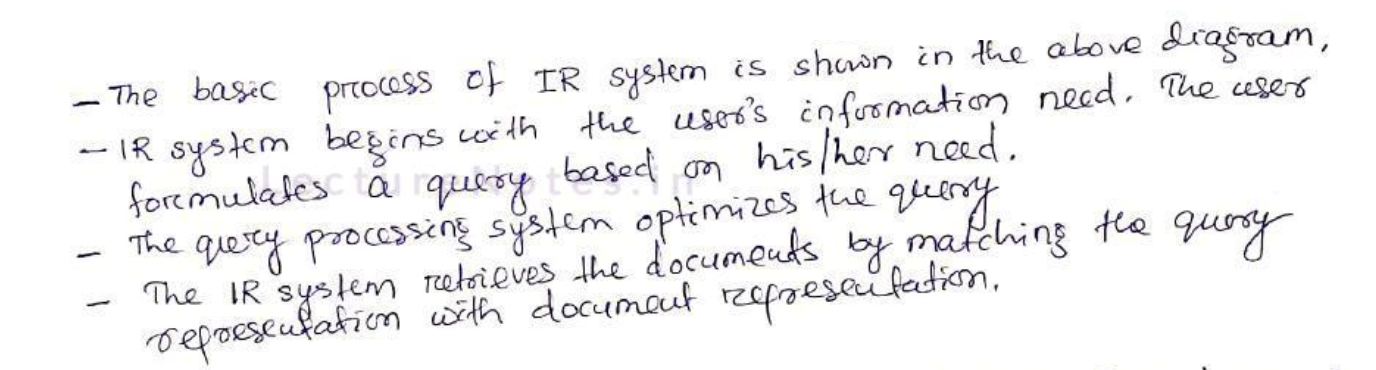 - The basic process of IR system is shown in the above diagram,
- IR system begins with the user's information need. The user
formulates a query based on his/her need.
LectureNotes.in
- The query processing system optimizes the query
- The IR system retrieves the documents by matching the query
representation with document representation.